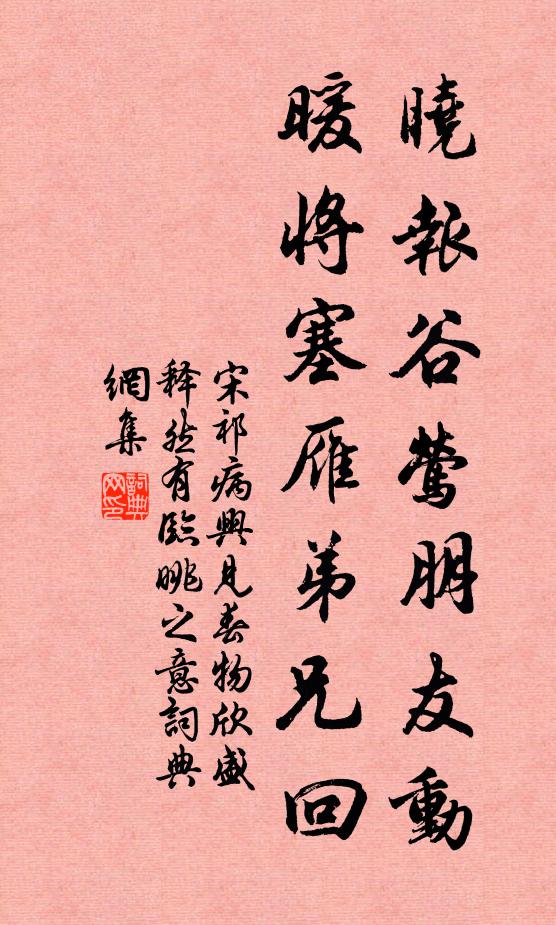 曉報谷鶯朋友動
暖將塞雁弟兄回
宋祁病興見春物欣盛
释然有臨眺之意詞典
網集
詞典
网印